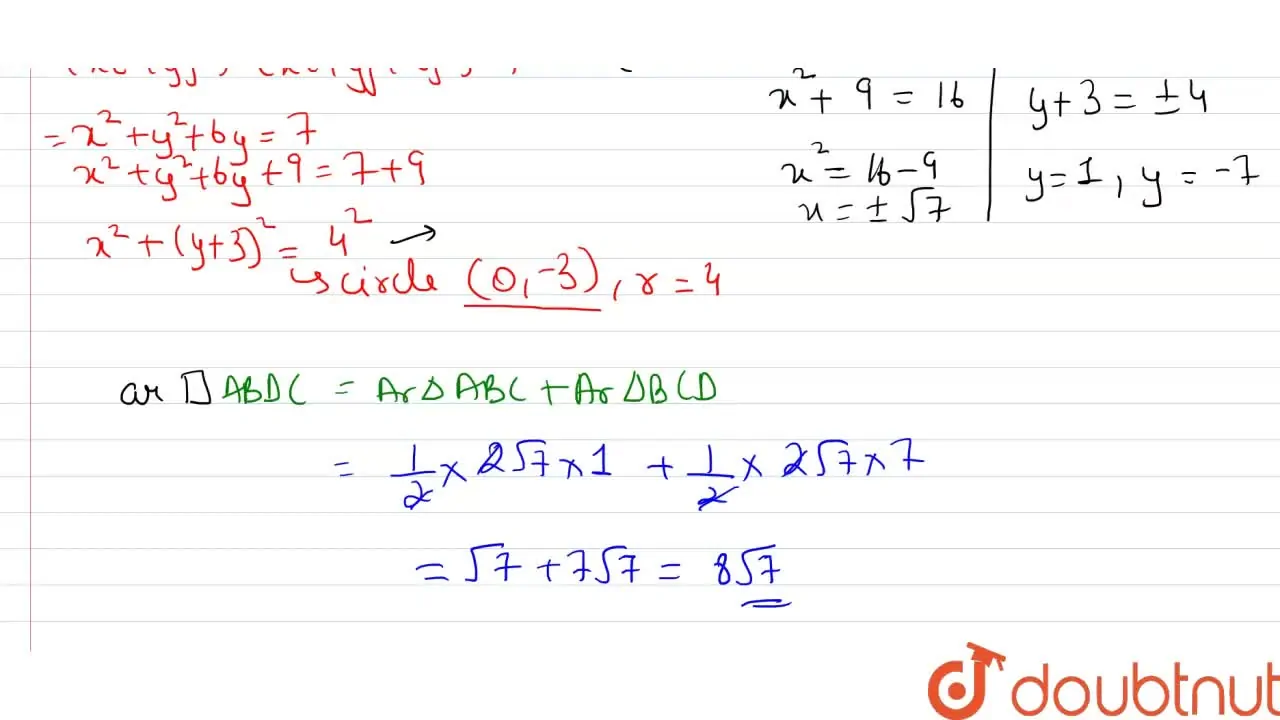 = x² + y² + 6y = 7
x² + y² + 6y + 9 = 7 + 9
x² + (y+3)² = 4² →
↳ circle (0, -3), r = 4
x² + 9 = 16 | y + 3 = ± 4
x² = 16 - 9 | y = 1, y = -7
x = ± √7
ar □ ABDC = Ar Δ ABC + Ar Δ BCD
= 1/2 × 2√7 × 1 + 1/2 × 2√7 × 7
= √7 + 7√7 = 8√7
doubtnut